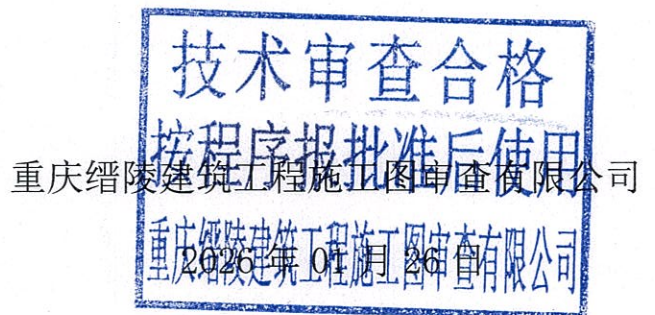 技术审查合格
按程序报批准后使用
重庆缙陵建筑工程施工图审查有限公司
重庆缙陵建筑工程施工图审查有限公司
2026 年 01 月 26 日